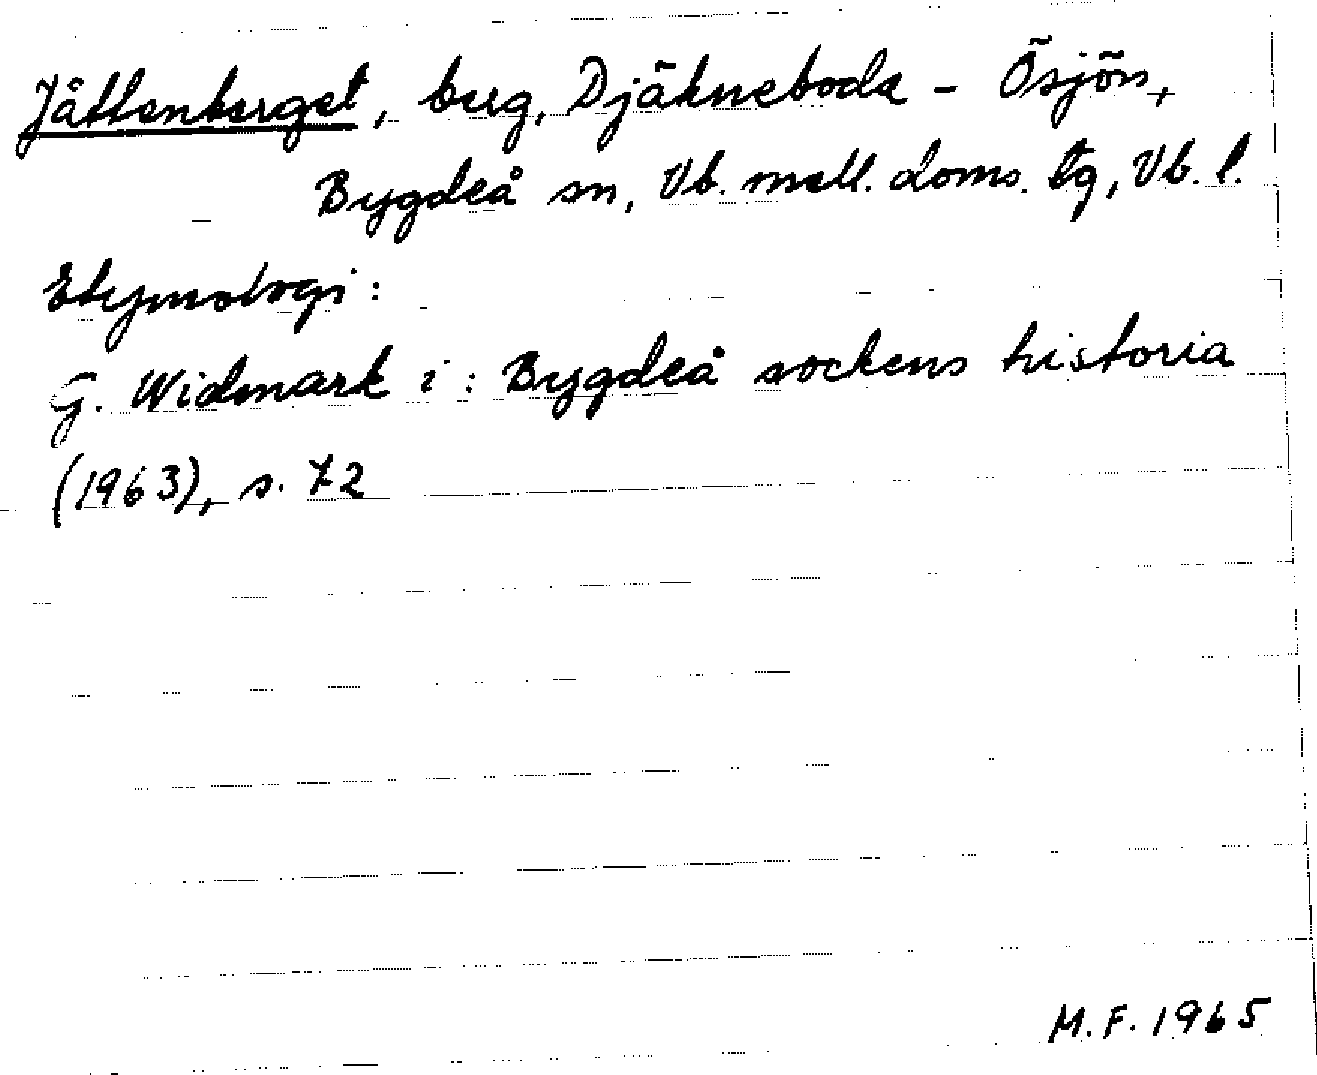 Jåttenberget, berg, Djäkneboda - Ösjön,
Bygdeå sn, Vb. mell. doms. tg, Vb. l.
Etymologi:
G. Widmark i: Bygdeå sockens historia
(1963), s. 72
M.F. 1965